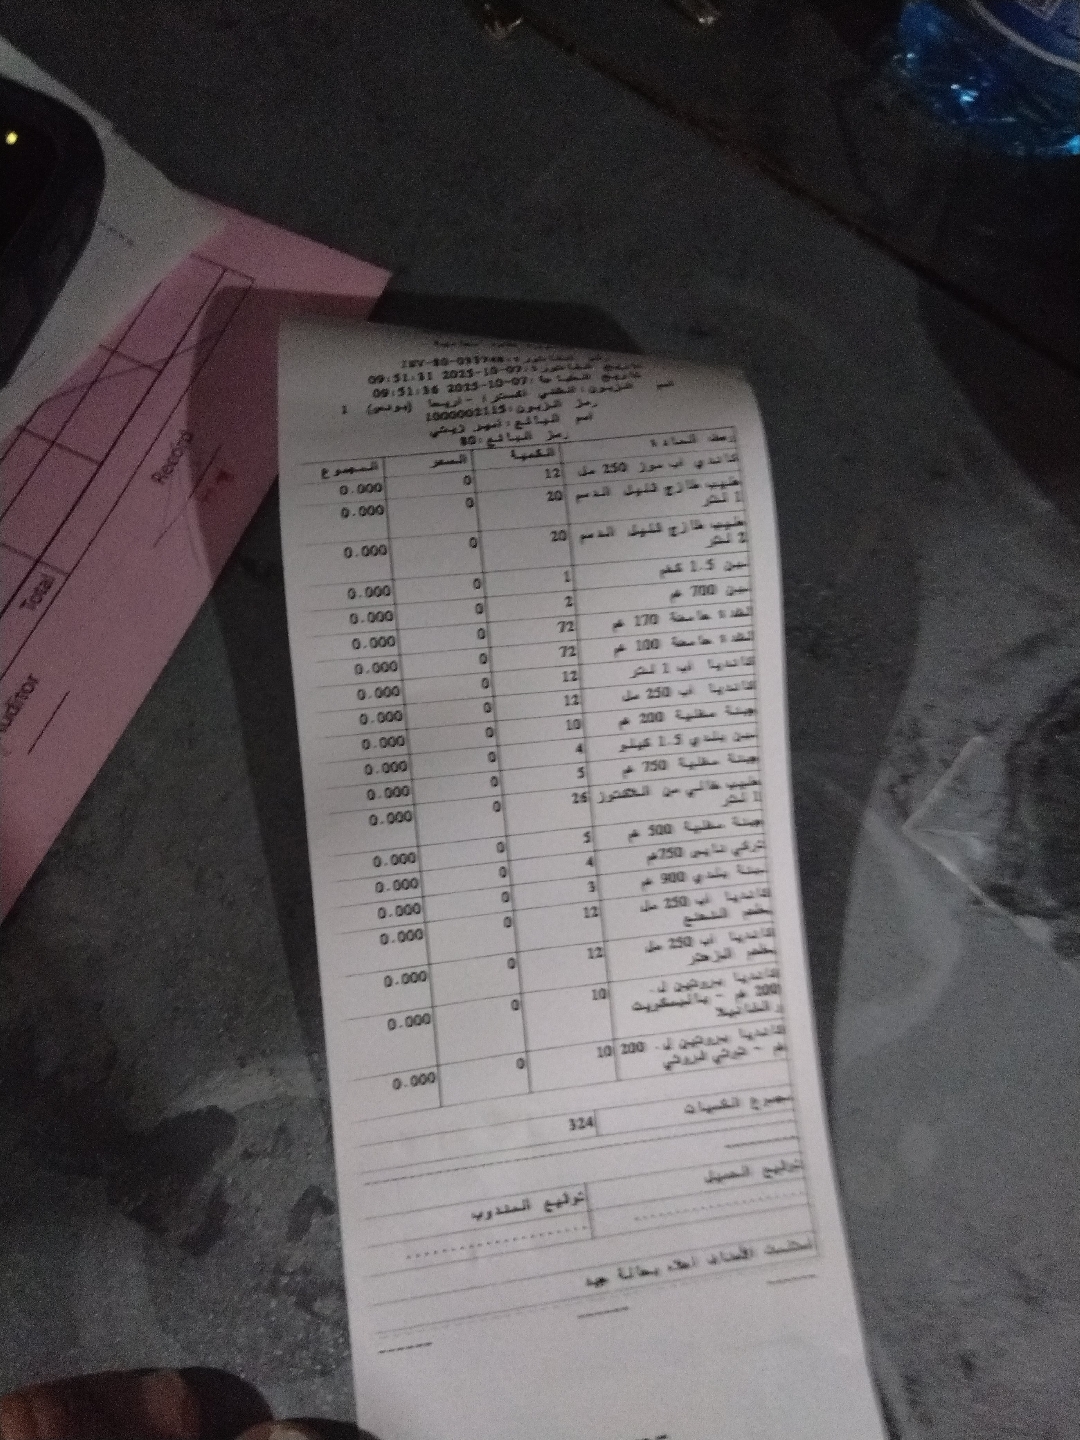 09:51:31 2025-10-07
09:51:36 2025-10-07
رمز الزبون:1000002115
اسم البائع:
رمز البائع:80
وصف المادة الكمية السعر المجموع
كاندي اب موز 250 مل 12 0 0.000
حليب طازج قليل الدسم 20 0 0.000
1 لتر
حليب طازج قليل الدسم 20 0 0.000
2 لتر
لبن 1.5 كغم 1 0 0.000
لبن 700 غم 2 0 0.000
قشدة حامضة 170 غم 72 0 0.000
قشدة حامضة 100 غم 72 0 0.000
كانديا اب 1 لتر 12 0 0.000
كانديا اب 250 مل 12 0 0.000
جبنة مغلية 200 غم 10 0 0.000
لبن بلدي 1.5 كيلو 4 0 0.000
جبنة مغلية 750 غم 5 0 0.000
حليب خالي من اللاكتوز 26 0 0.000
1 لتر
جبنة مغلية 500 غم 5 0 0.000
تركي 750غم 4 0 0.000
لبنة بلدي 900 غم 3 0 0.000
كانديا اب 250 مل 12 0 0.000
بطعم النعنع
كانديا اب 250 مل 12 0 0.000
بطعم الزعتر
كانديا بروتين ل. 10 0 0.000
200 غم - بالبسكويت
و الفانيلا
كانديا بروتين ل. 200 10 0 0.000
غم - توتي فروتي
مجموع الكميات 324
توقيع العميل توقيع المندوب
استلمت الأصناف اعلاه بحالة جيد
Record
Total